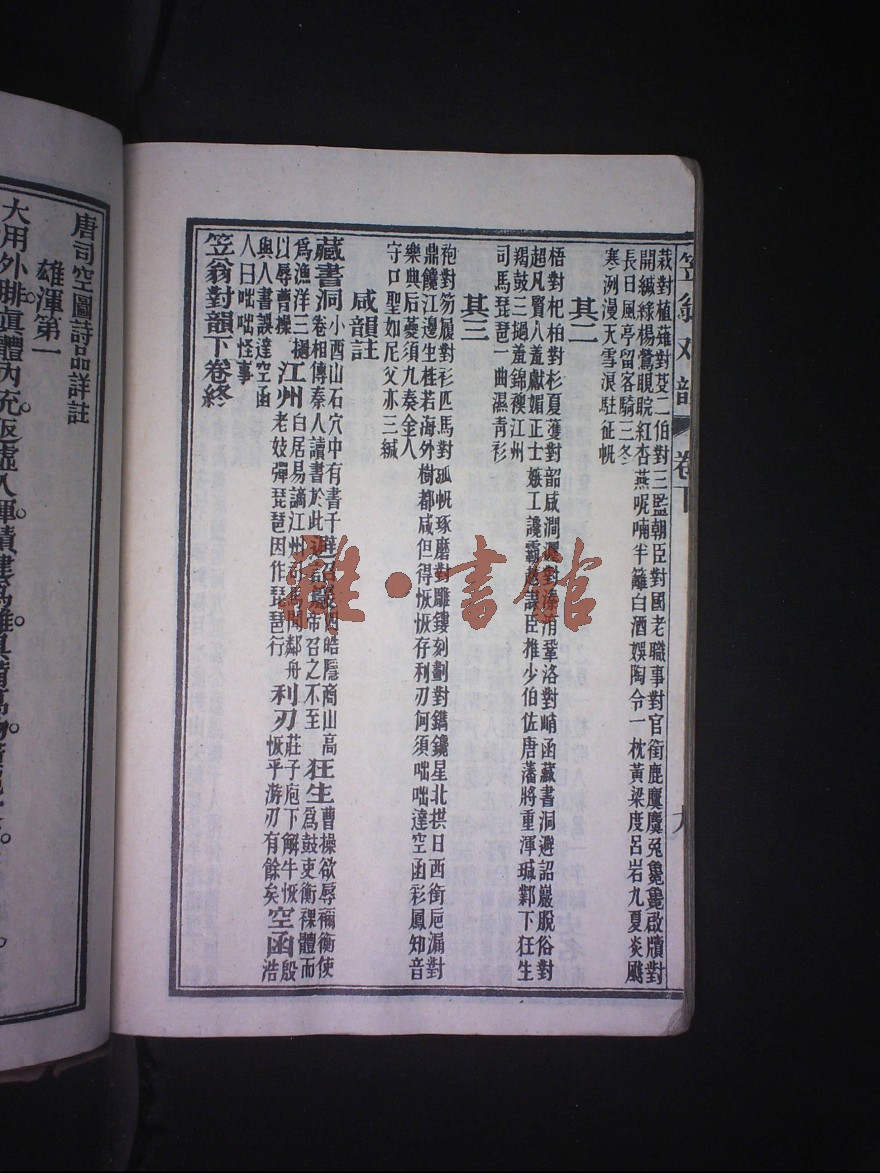 笠翁對韻 卷下 九
栽對植薙對芟二伯對三監朝臣對國老職事對官銜鹿麌麌兔毚毚啟牘對
開緘綠楊鶯睍睆紅杏燕呢喃半籬白酒娛陶令一枕黃粱度呂岩九夏炎飈
長日風亭留客騎三冬
寒洌漫天雪浪駐征帆
其二
梧對杞柏對杉夏濩對韶咸澗瀍對溱洧鞏洛對崤函藏書洞避詔巖脫俗對
超凡賢人羞獻媚正士嫉工讒霸越謀臣推少伯佐唐藩將重渾瑊鄴下狂生
羯鼓三撾羞錦襖江州
司馬琵琶一曲濕青衫
其三
袍對笏履對衫匹馬對孤帆琢磨對雕鏤刻劃對鐫鑱星北拱日西銜卮漏對
鼎饞江邊生桂若海外樹都咸但得恢恢存利刃何須咄咄達空函彩鳳知音
樂典后夔須九奏金人
守口聖如尼父亦三緘
咸韻註
藏書洞 小酉山石穴中有書千
卷相傳秦人讀書於此
四皓隱商山高
帝召之不至 狂生 曹操欲辱禰衡使
為鼓吏衡裸體而
為漁洋三撾
以辱曹操 江州 白居易謫江州司馬聞鄰舟
老妓彈琵琶因作琵琶行 利刃 莊子庖丁解牛恢
恢乎游刃有餘矣 空函 殷
浩
與人書誤達空函
人曰咄咄怪事
笠翁對韻下卷終
唐司空圖詩品詳註
雄渾第一
大用外腓真體內充返虛入渾積健為雄具備萬物